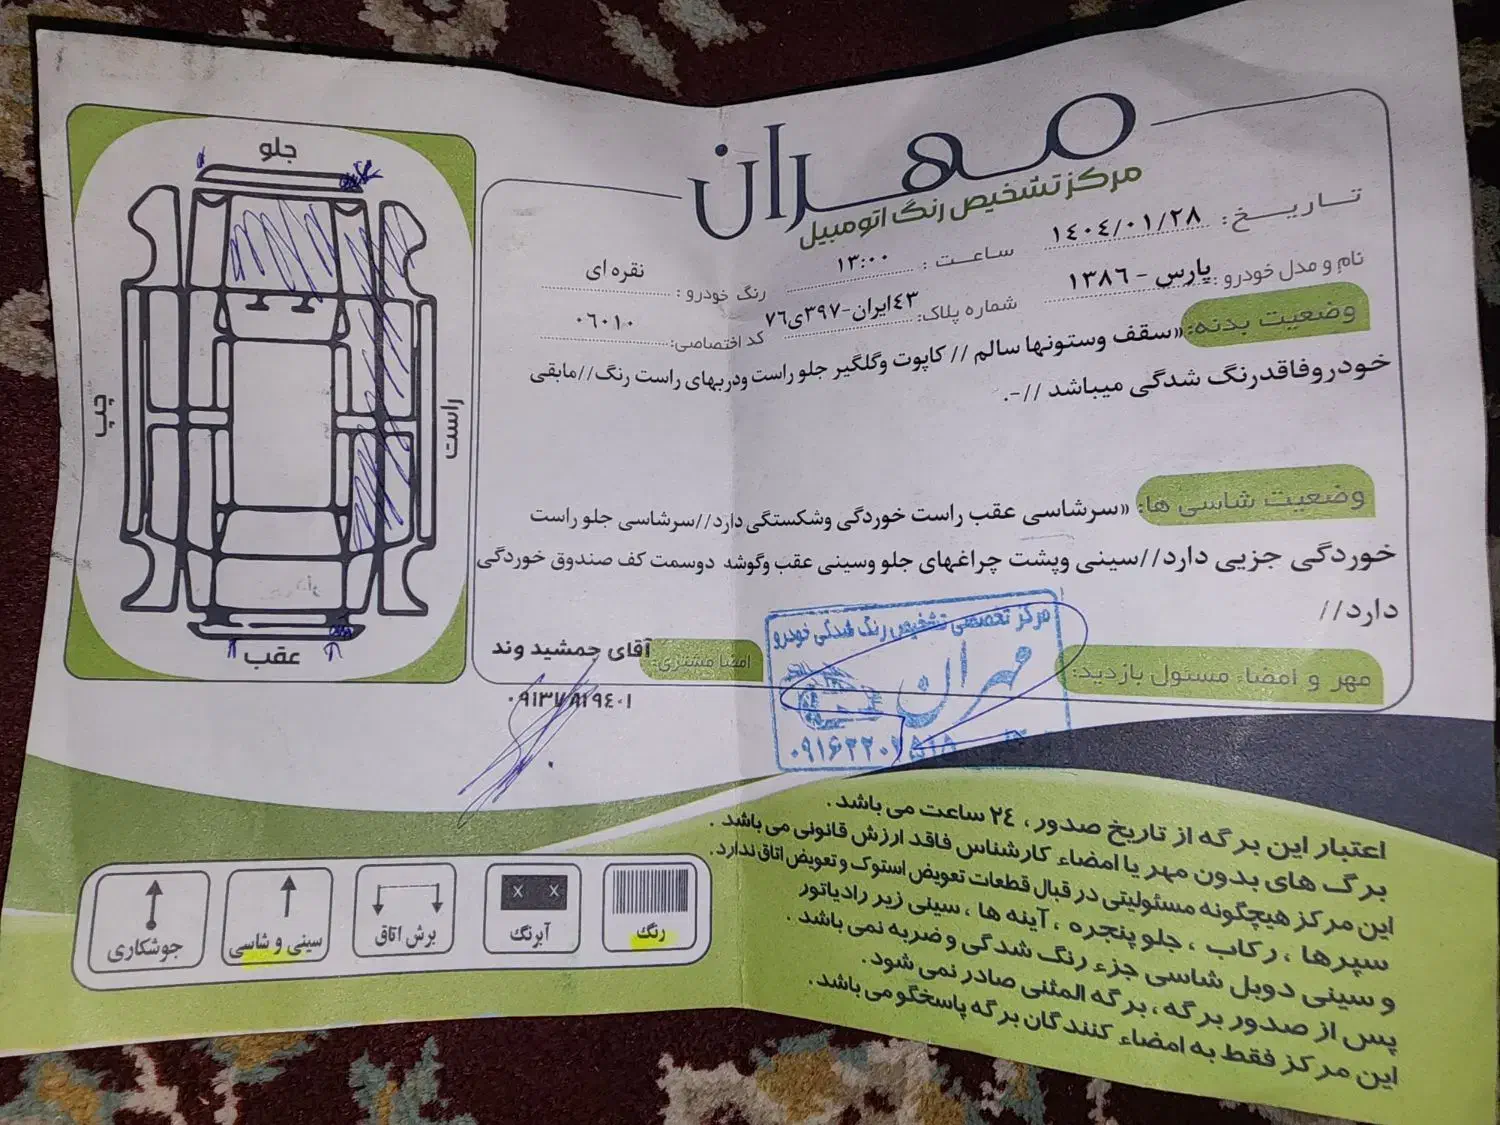 مهران
مرکز تشخیص رنگ اتومبیل
تاریخ: ۱۴۰۴/۰۱/۲۸
ساعت: ۱۳:۰۰
رنگ خودرو: نقره ای
نام و مدل خودرو: پارس - ۱۳۸۶
شماره پلاک: ۴۳ایران-۳۹۷ی۷۶
کد اختصاصی: ۰۶۰۱۰
وضعیت بدنه: «سقف وستونها سالم // کاپوت وگلگیر جلو راست ودربهای راست رنگ//مابقی
خودروفاقدرنگ شدگی میباشد //-.
وضعیت شاسی ها: «سرشاسی عقب راست خوردگی وشکستگی دارد//سرشاسی جلو راست
خوردگی جزیی دارد//سینی وپشت چراغهای جلو وسینی عقب وگوشه دوسمت کف صندوق خوردگی
دارد//
مهر و امضاء مسئول بازدید:
مرکز تخصصی تشخیص رنگ شدگی خودرو
مهران
امضا مشتری: آقای جمشید وند
جلو
چپ
راست
عقب
اعتبار این برگه از تاریخ صدور، ۲۴ ساعت می باشد.
برگ های بدون مهر یا امضاء کارشناس فاقد ارزش قانونی می باشد.
این مرکز هیچگونه مسئولیتی در قبال قطعات تعویض استوک و تعویض اتاق ندارد.
سپرها، رکاب، جلو پنجره، آینه ها، سینی زیر رادیاتور
و سینی دوبل شاسی جزء رنگ شدگی و ضربه نمی باشد.
پس از صدور برگه، برگه المثنی صادر نمی شود.
این مرکز فقط به امضاء کنندگان برگه پاسخگو می باشد.
رنگ
آبرنگ
برش اتاق
سینی و شاسی
جوشکاری